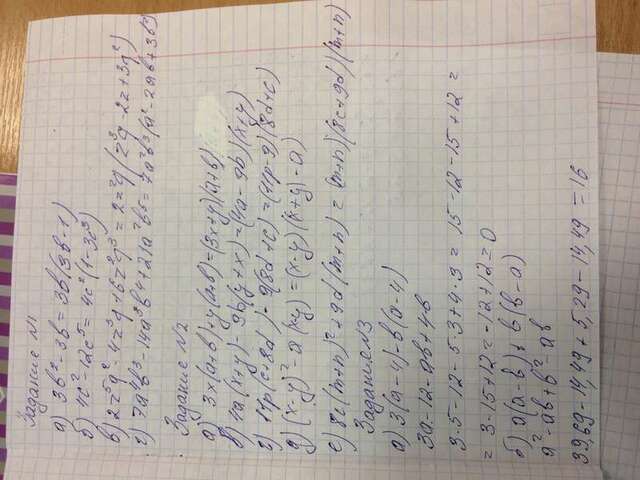 Задание №1
а) 3b² - 3b = 3b(3b-1)
б) 4c² - 12c⁵ = 4c²(1-3c³)
в) 2z⁵q² - 4z³q + 6z²q³ = 2z²q(z³q - 2z + 3q²)
г) 7a⁴b³ - 14a³b⁴ + 21a²b⁵ = 7a²b³(a² - 2ab + 3b²)
Задание №2
а) 3x(a+b) + y(a+b) = (3x+y)(a+b)
б) 4a(x+y) - 9b(y+x) = (4a-9b)(x+y)
д) (x-y)² - a(x-y) = (x-y)((x+y)-a)
е) 8c(m+n)² + 9d(m+n) = (m+n)(8c+9d)(m+n)
Задание №3
а) 3(a-4) - b(a-4)
3a - 12 - ab + 4b
3·5 - 12 - 5·3 + 4·3 = 15 - 12 - 15 + 12 =
= 3 - 15 + 12 = -12 + 12 = 0
б) a(a-b) + b(b-a)
a² - ab + b² - ab
39,69 - 14,49 + 5,29 - 14,49 = 16